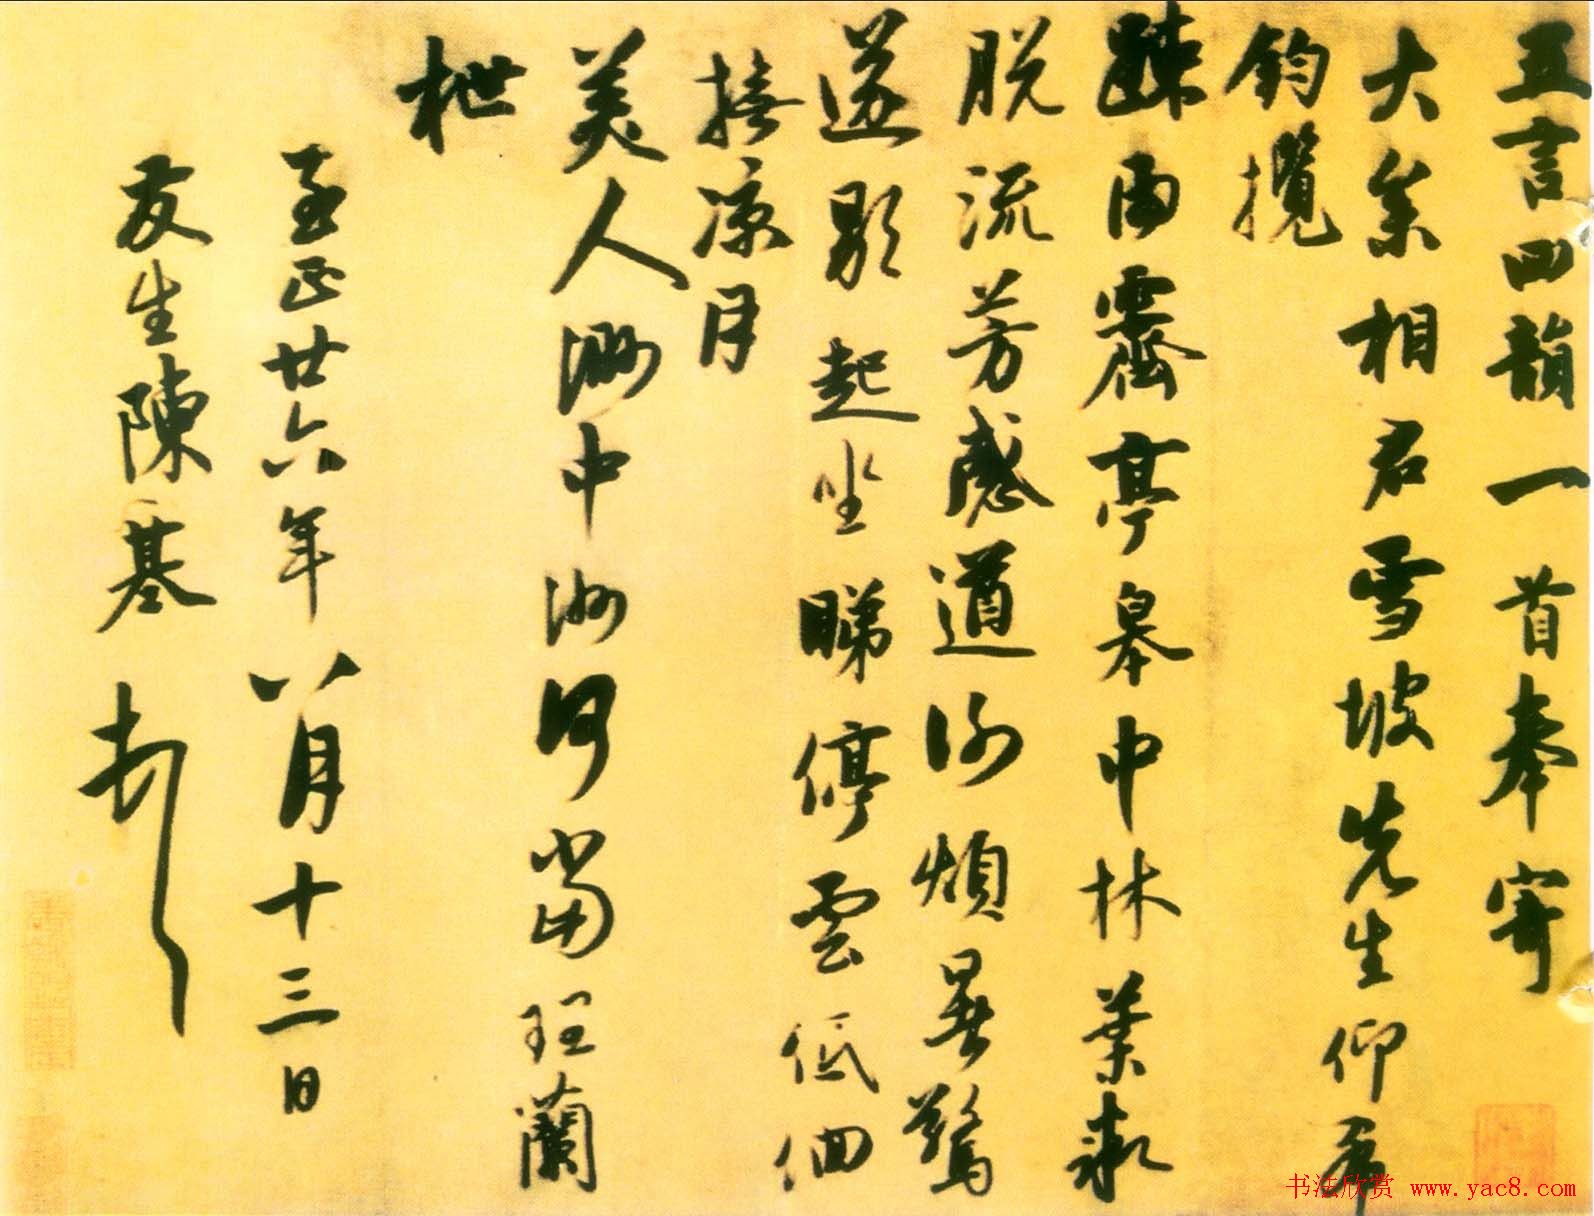 五言四韻一首奉寄
大參相君雪坡先生仰希
鈞攬
疎雨霽亭皋中林葉未
脱流芳感遒渺煩暑驚
遂歇起坐睇停雲低佪
捲凉月
美人渺中洲何當理蘭
枻
至正廿六年八月十三日
友生陳基
书法欣赏 www.yac8.com